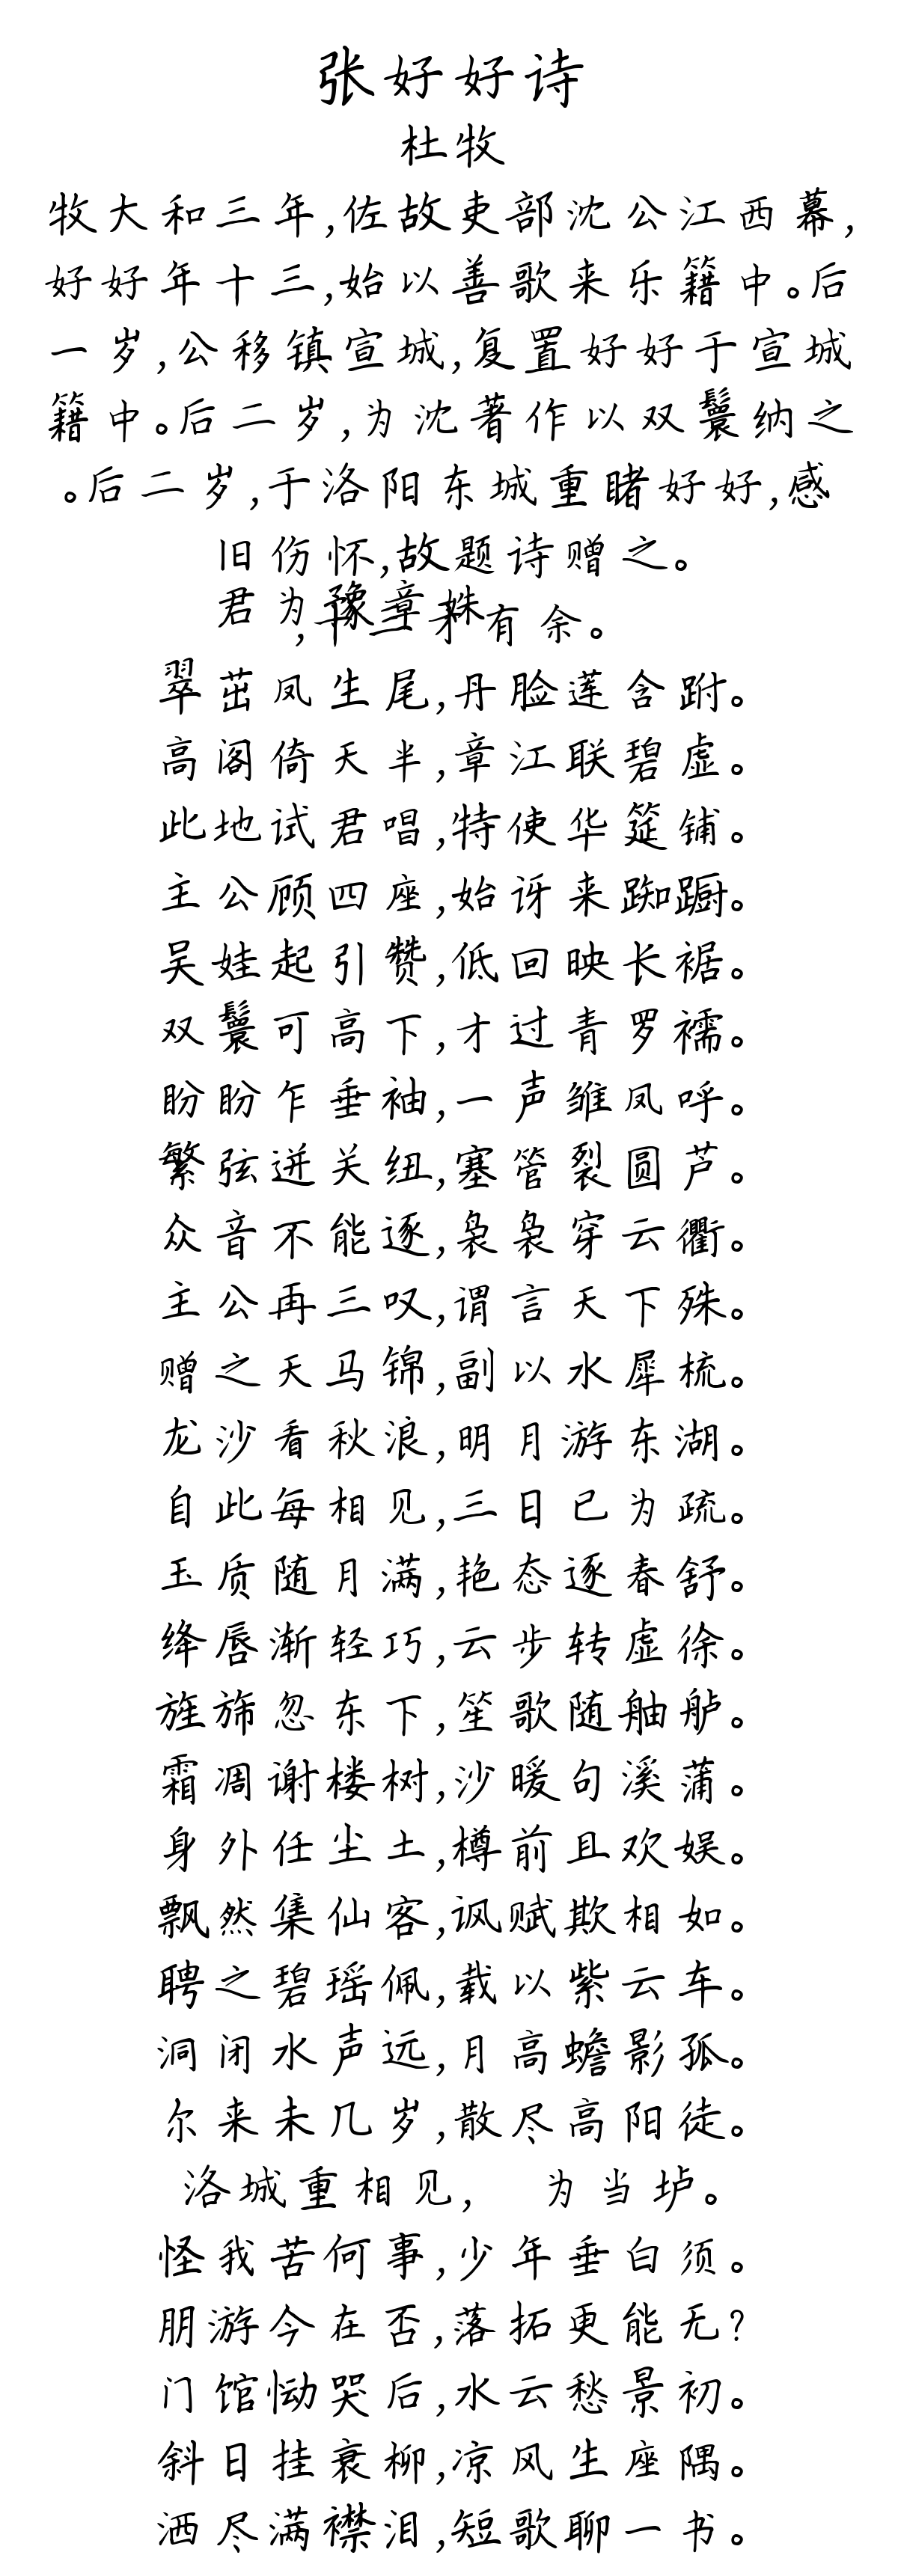 张好好诗
杜牧
牧大和三年,佐故吏部沈公江西幕,
好好年十三,始以善歌来乐籍中。后
一岁,公移镇宣城,复置好好于宣城
籍中。后二岁,为沈著作以双鬟纳之
。后二岁,于洛阳东城重睹好好,感
旧伤怀,故题诗赠之。
君为豫章姝
,十三才有余。
翠茁凤生尾,丹脸莲含跗。
高阁倚天半,章江联碧虚。
此地试君唱,特使华筵铺。
主公顾四座,始讶来踟蹰。
吴娃起引赞,低回映长裾。
双鬟可高下,才过青罗襦。
盼盼乍垂袖,一声雏凤呼。
繁弦迸关纽,塞管裂圆芦。
众音不能逐,袅袅穿云衢。
主公再三叹,谓言天下殊。
赠之天马锦,副以水犀梳。
龙沙看秋浪,明月游东湖。
自此每相见,三日已为疏。
玉质随月满,艳态逐春舒。
绛唇渐轻巧,云步转虚徐。
旌旆忽东下,笙歌随舳舻。
霜凋谢楼树,沙暖句溪蒲。
身外任尘土,樽前且欢娱。
飘然集仙客,讽赋欺相如。
聘之碧瑶佩,载以紫云车。
洞闭水声远,月高蟾影孤。
尔来未几岁,散尽高阳徒。
洛城重相见,  为当垆。
怪我苦何事,少年垂白须。
朋游今在否,落拓更能无?
门馆恸哭后,水云愁景初。
斜日挂衰柳,凉风生座隅。
洒尽满襟泪,短歌聊一书。